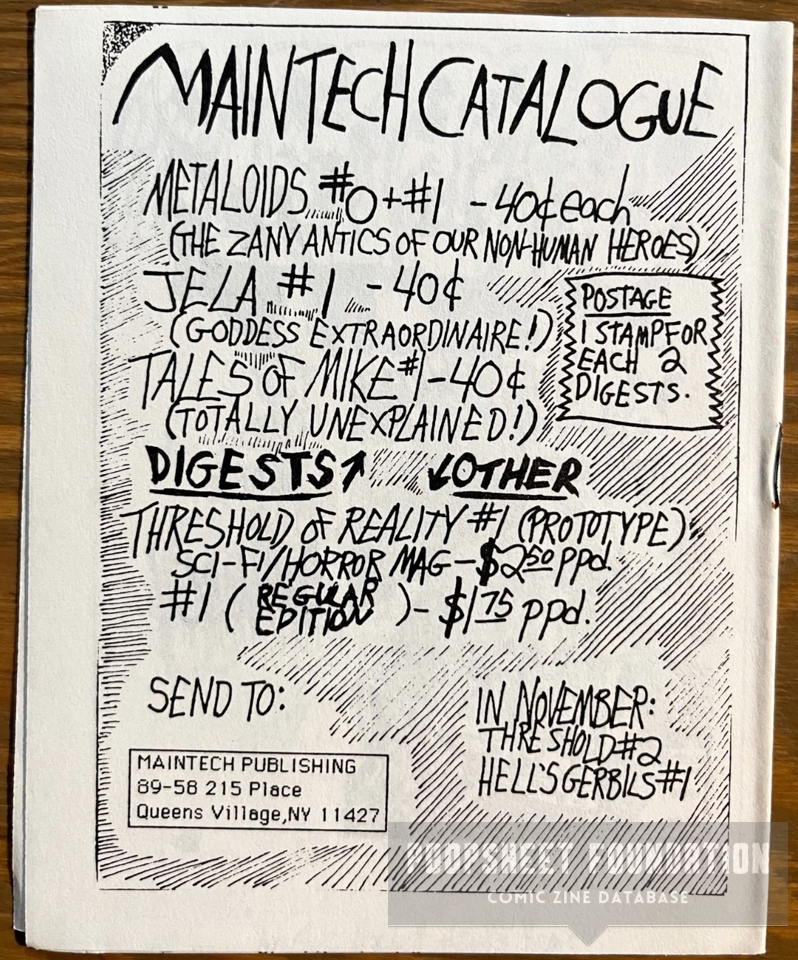 MAINTECH CATALOGUE
METALOIDS #0 + #1 - 40¢ each
(THE ZANY ANTICS OF OUR NON-HUMAN HEROES)
JELA #1 - 40¢
(GODDESS EXTRAORDINAIRE!)
TALES OF MIKE #1 - 40¢
(TOTALLY UNEXPLAINED!)
POSTAGE
1 STAMP FOR
EACH 2
DIGESTS.
DIGESTS↑ ↙OTHER
THRESHOLD OF REALITY #1 (PROTOTYPE)
SCI-FI/HORROR MAG - $2.50 ppd.
#1 (REGULAR
EDITION) - $1.75 ppd.
SEND TO:
MAINTECH PUBLISHING
89-58 215 Place
Queens Village,NY 11427
IN NOVEMBER:
THRESHOLD #2
HELL'S GERBILS #1
POOPSHEET FOUNDATION
COMIC ZINE DATABASE